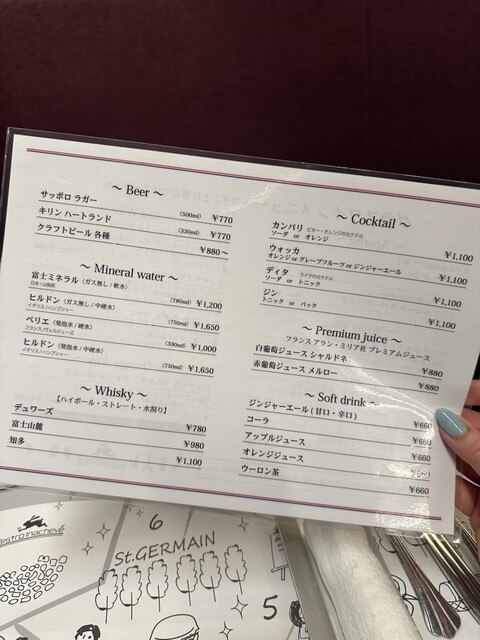 ～ Beer ～
サッポロ ラガー (500ml) ¥770
キリン ハートランド (330ml) ¥770
クラフトビール 各種 ¥880～
～ Mineral water ～
富士ミネラル（ガス無し / 軟水） (780ml) ¥1,200
日本 / 山梨県
ヒルドン（ガス無し / 中硬水） (750ml) ¥1,650
イギリス/ハンプシャー
ペリエ（発泡水 / 硬水） (330ml) ¥1,000
フランス/ヴェルジェーズ
ヒルドン（発泡水 / 中硬水） (750ml) ¥1,650
イギリス/ハンプシャー
～ Whisky ～
【ハイボール・ストレート・水割り】
デュワーズ ¥780
富士山麓 ¥980
知多 ¥1,100
～ Cocktail ～
カンパリ ビター・オレンジのカクテル
ソーダ or オレンジ ¥1,100
ウォッカ
オレンジ or グレープフルーツ or ジンジャーエール ¥1,100
ディタ ライチのカクテル
ソーダ or トニック ¥1,100
ジン
トニック or バック ¥1,100
～ Premium juice ～
フランス アラン・ミリア社 プレミアムジュース
白葡萄ジュース シャルドネ ¥880
赤葡萄ジュース メルロー ¥880
～ Soft drink ～
ジンジャーエール ( 甘口・辛口 ) ¥660
コーラ ¥660
アップルジュース ¥660
オレンジジュース ¥660
ウーロン茶 ¥660
BISTRO INACHEVÉ
6
St.GERMAIN
5